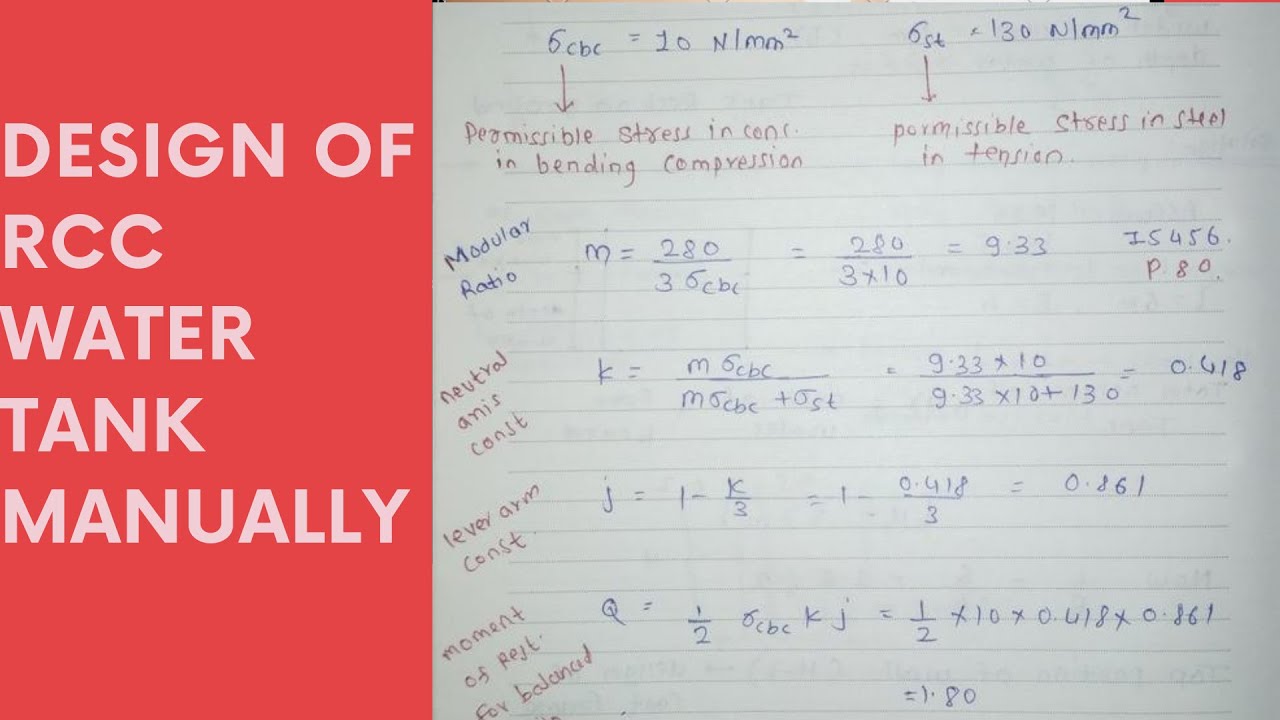 DESIGN OF
RCC
WATER
TANK
MANUALLY
σcbc = 10 N/mm² σst = 130 N/mm²
Permissible stress in conc.
in bending compression
pormissible stress in steel
in tension.
Modular
Ratio
m = 280 / 3 σcbc = 280 / 3×10 = 9.33
IS456.
P. 80.
neutral
axis
const
k = mσcbc / mσcbc + σst = 9.33×10 / 9.33×10+130 = 0.418
lever arm
const.
j = 1 - k/3 = 1 - 0.418/3 = 0.861
moment
of rest.
for balanced
Q = 1/2 σcbc k j = 1/2 × 10 × 0.418 × 0.861
= 1.80